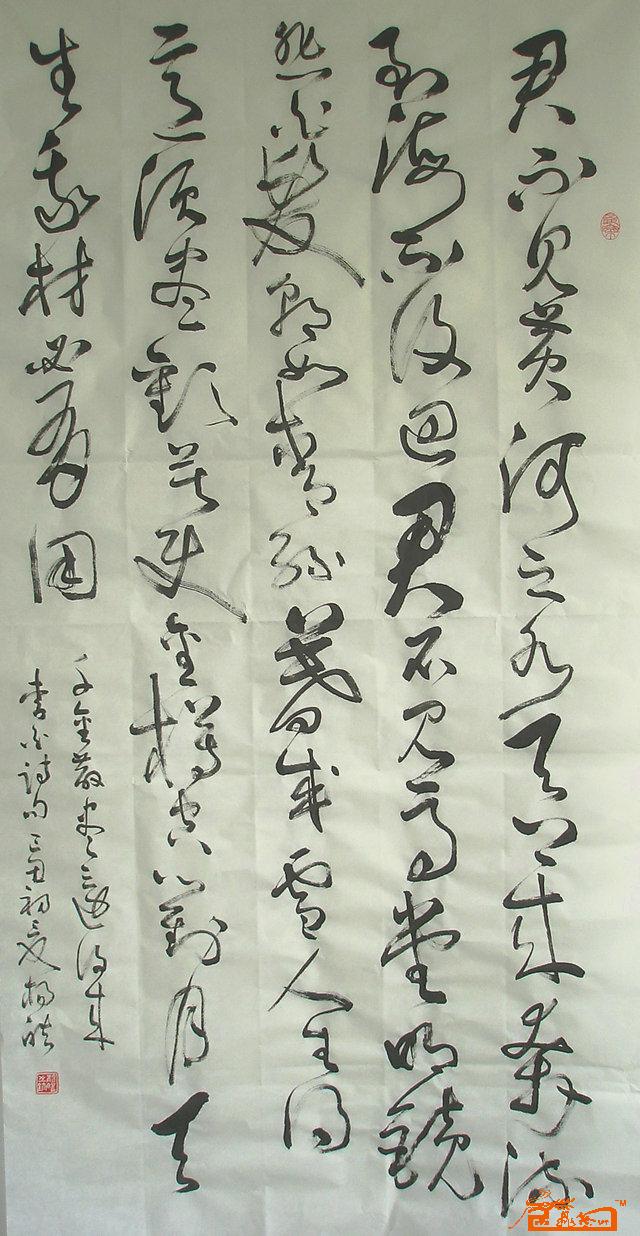 君不见黄河之水天上来奔流
到海不复回君不见高堂明镜
悲白发朝如青丝暮成雪人生得
意须尽欢莫使金樽空对月天
生我材必有用
千金散尽还复来
李白诗句 己丑初夏 杨